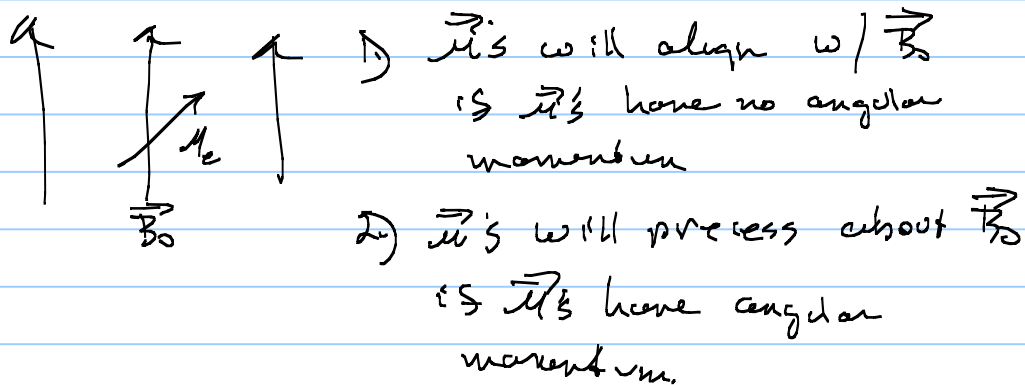 1.) μ⃗'s will align w/ B⃗₀
if μ⃗'s have no angular
momentum
μₑ
B⃗₀
2.) μ⃗'s will precess about B⃗₀
if μ⃗'s have angular
momentum.